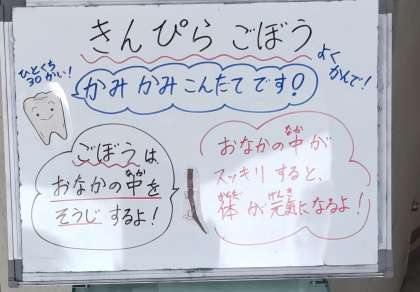 きんぴらごぼう
よく
かんで!
ひとくち
30かい!
かみかみこんだてです!
ごぼうは、
おなかの中を
なか
そうじするよ!
おなかの中が
なか
スッキリすると、
体が元気になるよ!
からだ げんき